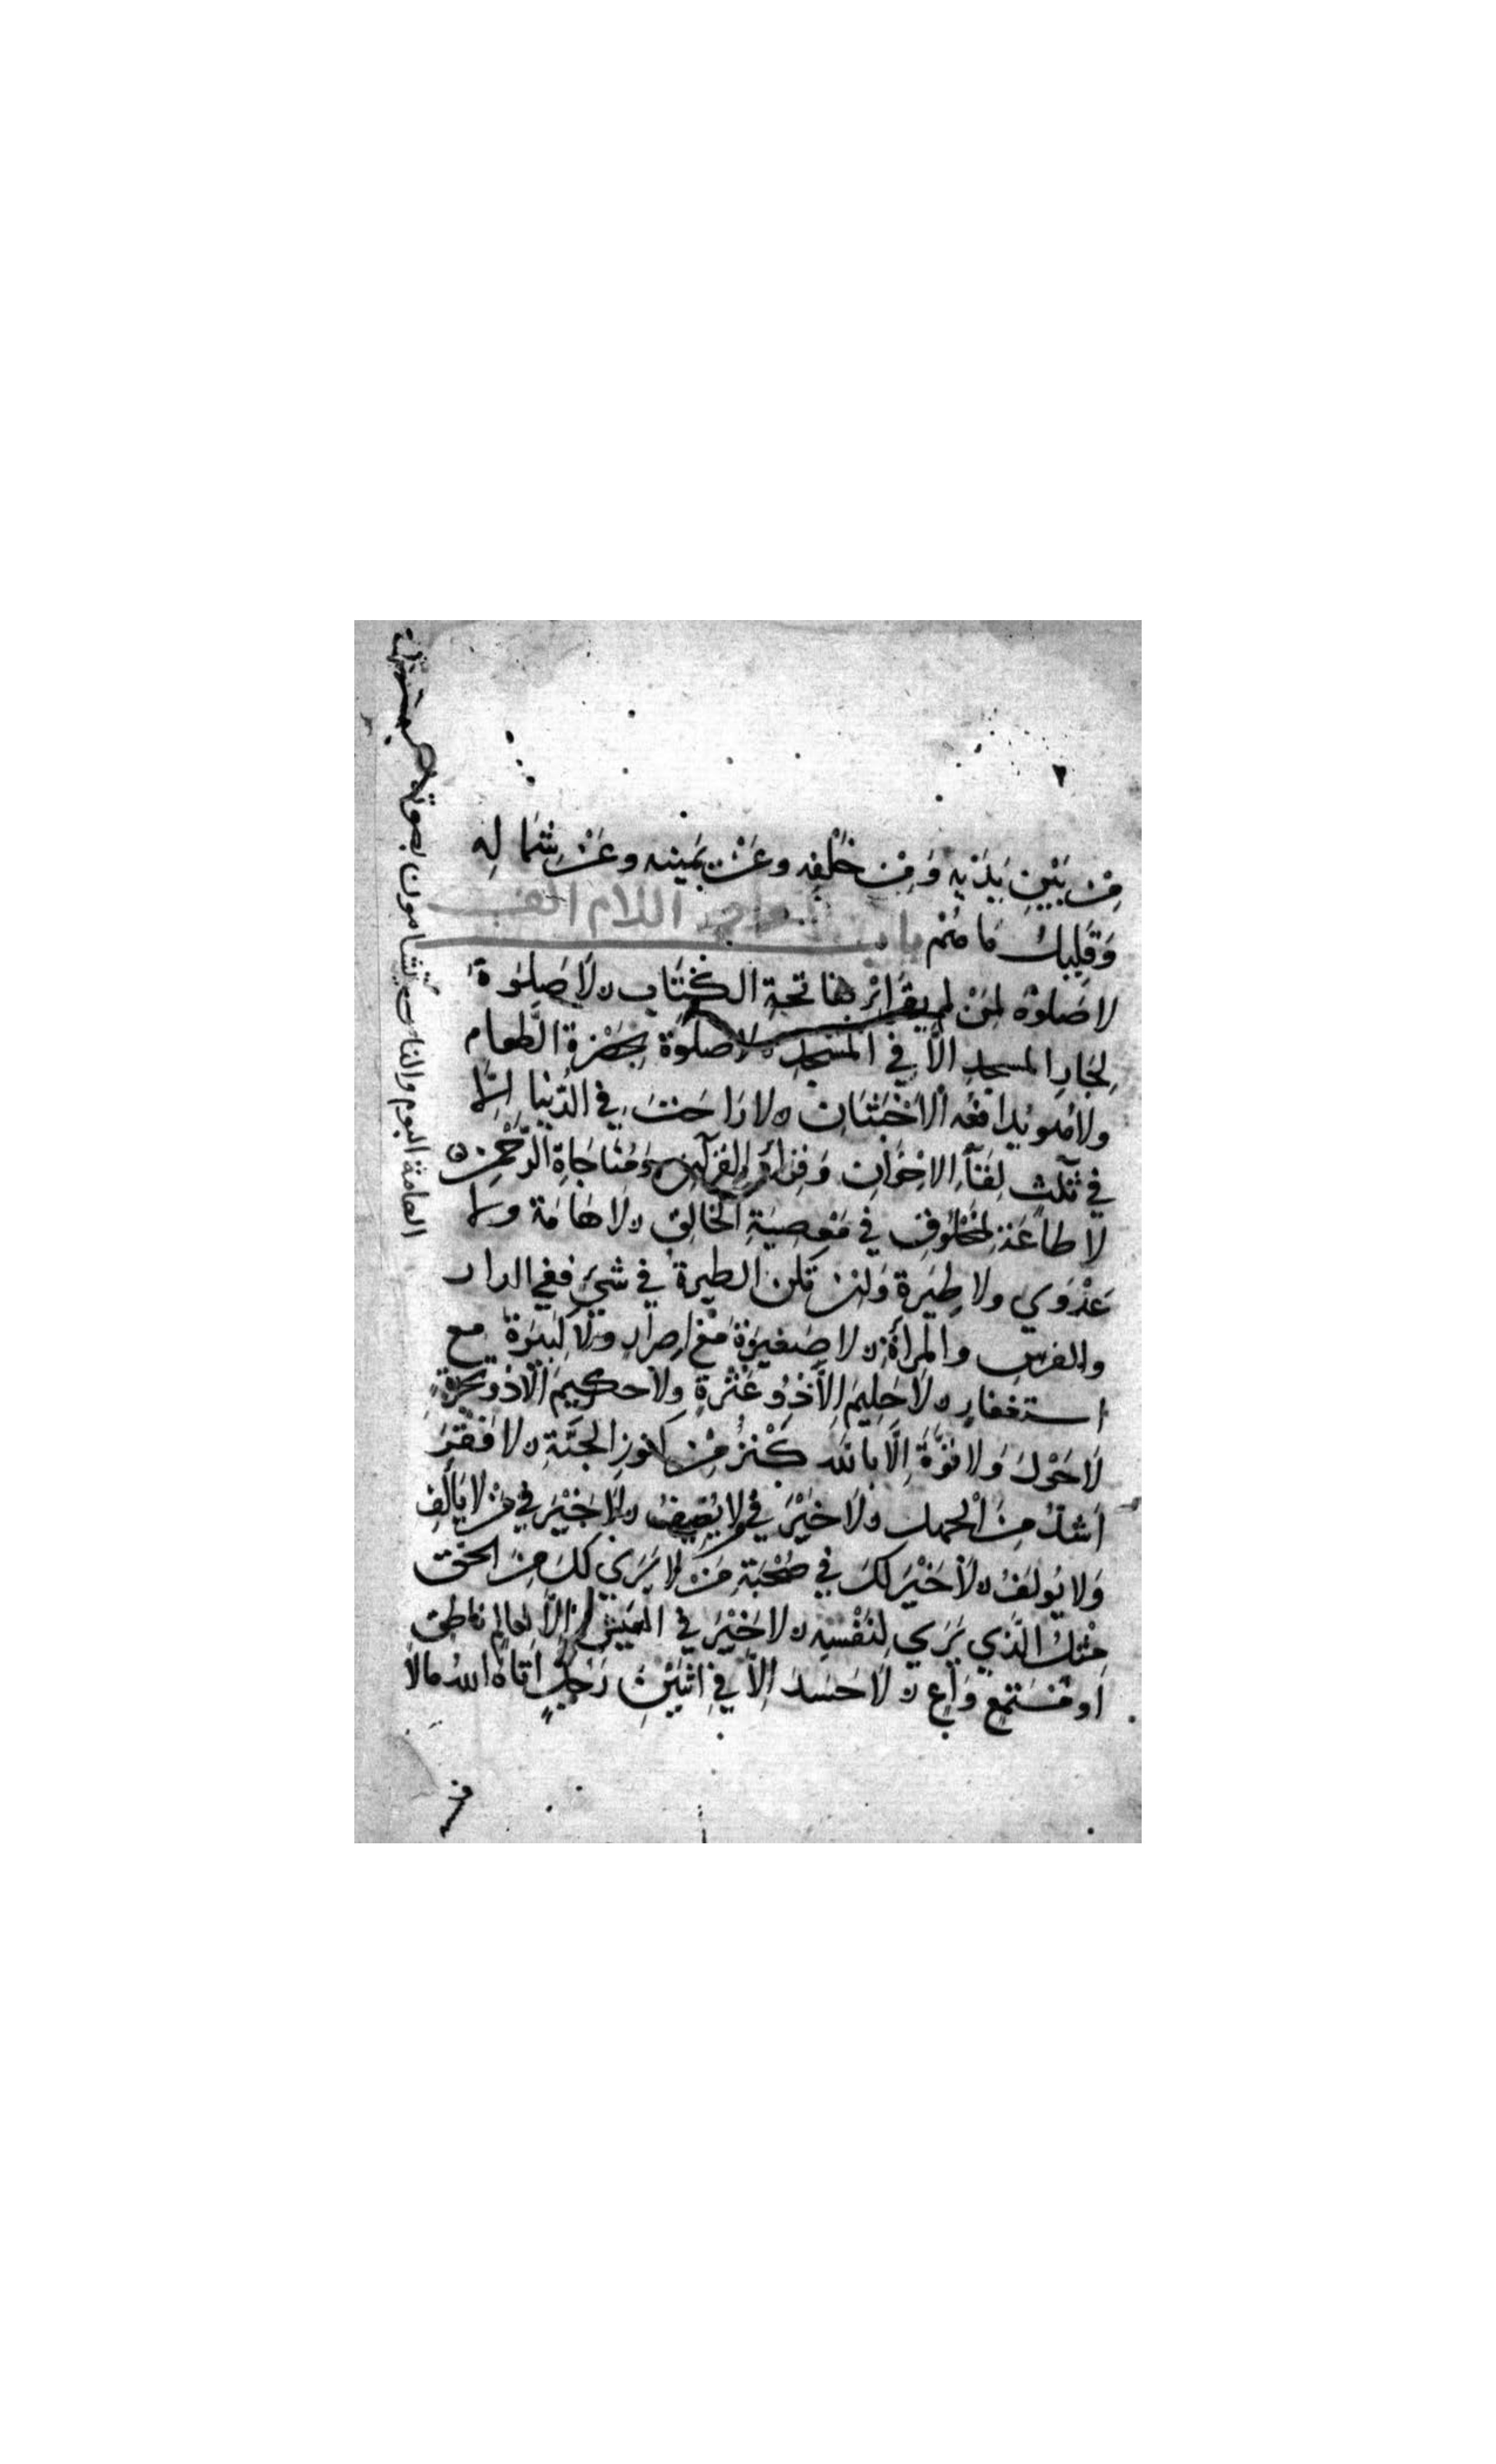 مِنْ بَيْنِ يَدَيْهِ وَمِنْ خَلْفِهِ وعَنْ يَمِينِه وعَنْ شِمَالِهِ
وَقَلِيلٌ مَا هُمْ باب اللام الف
لا صَلوٰة لِمَنْ لم يقرا بفاتحةِ الكِتَابِ ن لَا صَلوٰةَ
لِجَارِ المسجدِ الاّ في المَسْجدِ ن لا صلوٰة بِحَضْرةِ الطَّعام
ولا هو يدافعه الأَخْبَثَانِ ن لا رَاحَت في الدُّنيا اِلّا
في ثَلٰثٍ لِقَآءِ الاِخْوَانِ وَقِرٰاةِ القرآنِ وَمُنَاجَاةِ الرَّحْمٰنِ ن
لا طاعَة لمَخْلُوقٍ في مَعْصِيَةِ الخَالِقِ ن لَا هَامَةَ ولا
عَدْوَي ولا طِيَرة وَاِنْ تكن الطيرة في شَيْءٍ ففي الدار
والفرسِ والمرأة ن لا صَغيرَةَ مَعَ اِصرارٍ ولَا كَبيرَةَ مع
استغفارٍ ن لَا حَلِيمَ اِلاَّ ذُو عَثْرةٍ ولا حكيمَ الّا ذو تجربةٍ
لَا حَوْلَ وَلا قُوَّةَ اِلَّا بالله كَنْزٌ مِنْ كنوزِ الجَنَّةِ ن لا فَقْرَ
اَشَدُّ مِنَ الجهلِ ولا خَيْرَ في ن لا خَيْرَ في مَنْ لا يَالَفِ
وَلا يُولَفُ ن لا خَيْرَ لكَ في صُحْبَةِ مَنْ لا يَرَي لكَ مِنَ الحَقِّ
مِثْلَ الّذي يَرَي لِنَفْسِهِ ن لا خَيْرَ في العَيْشِ اِلاَّ لعالِمٍ ناطِقٍ
او مُسْتَمِعٍ وَاعٍ ن لَا حَسَدَ اِلاَّ في اثنَيْنِ رَجُلٌ اَتَاهُ اللهُ مالاً
العامة البوم والناس يتشامون بصوته